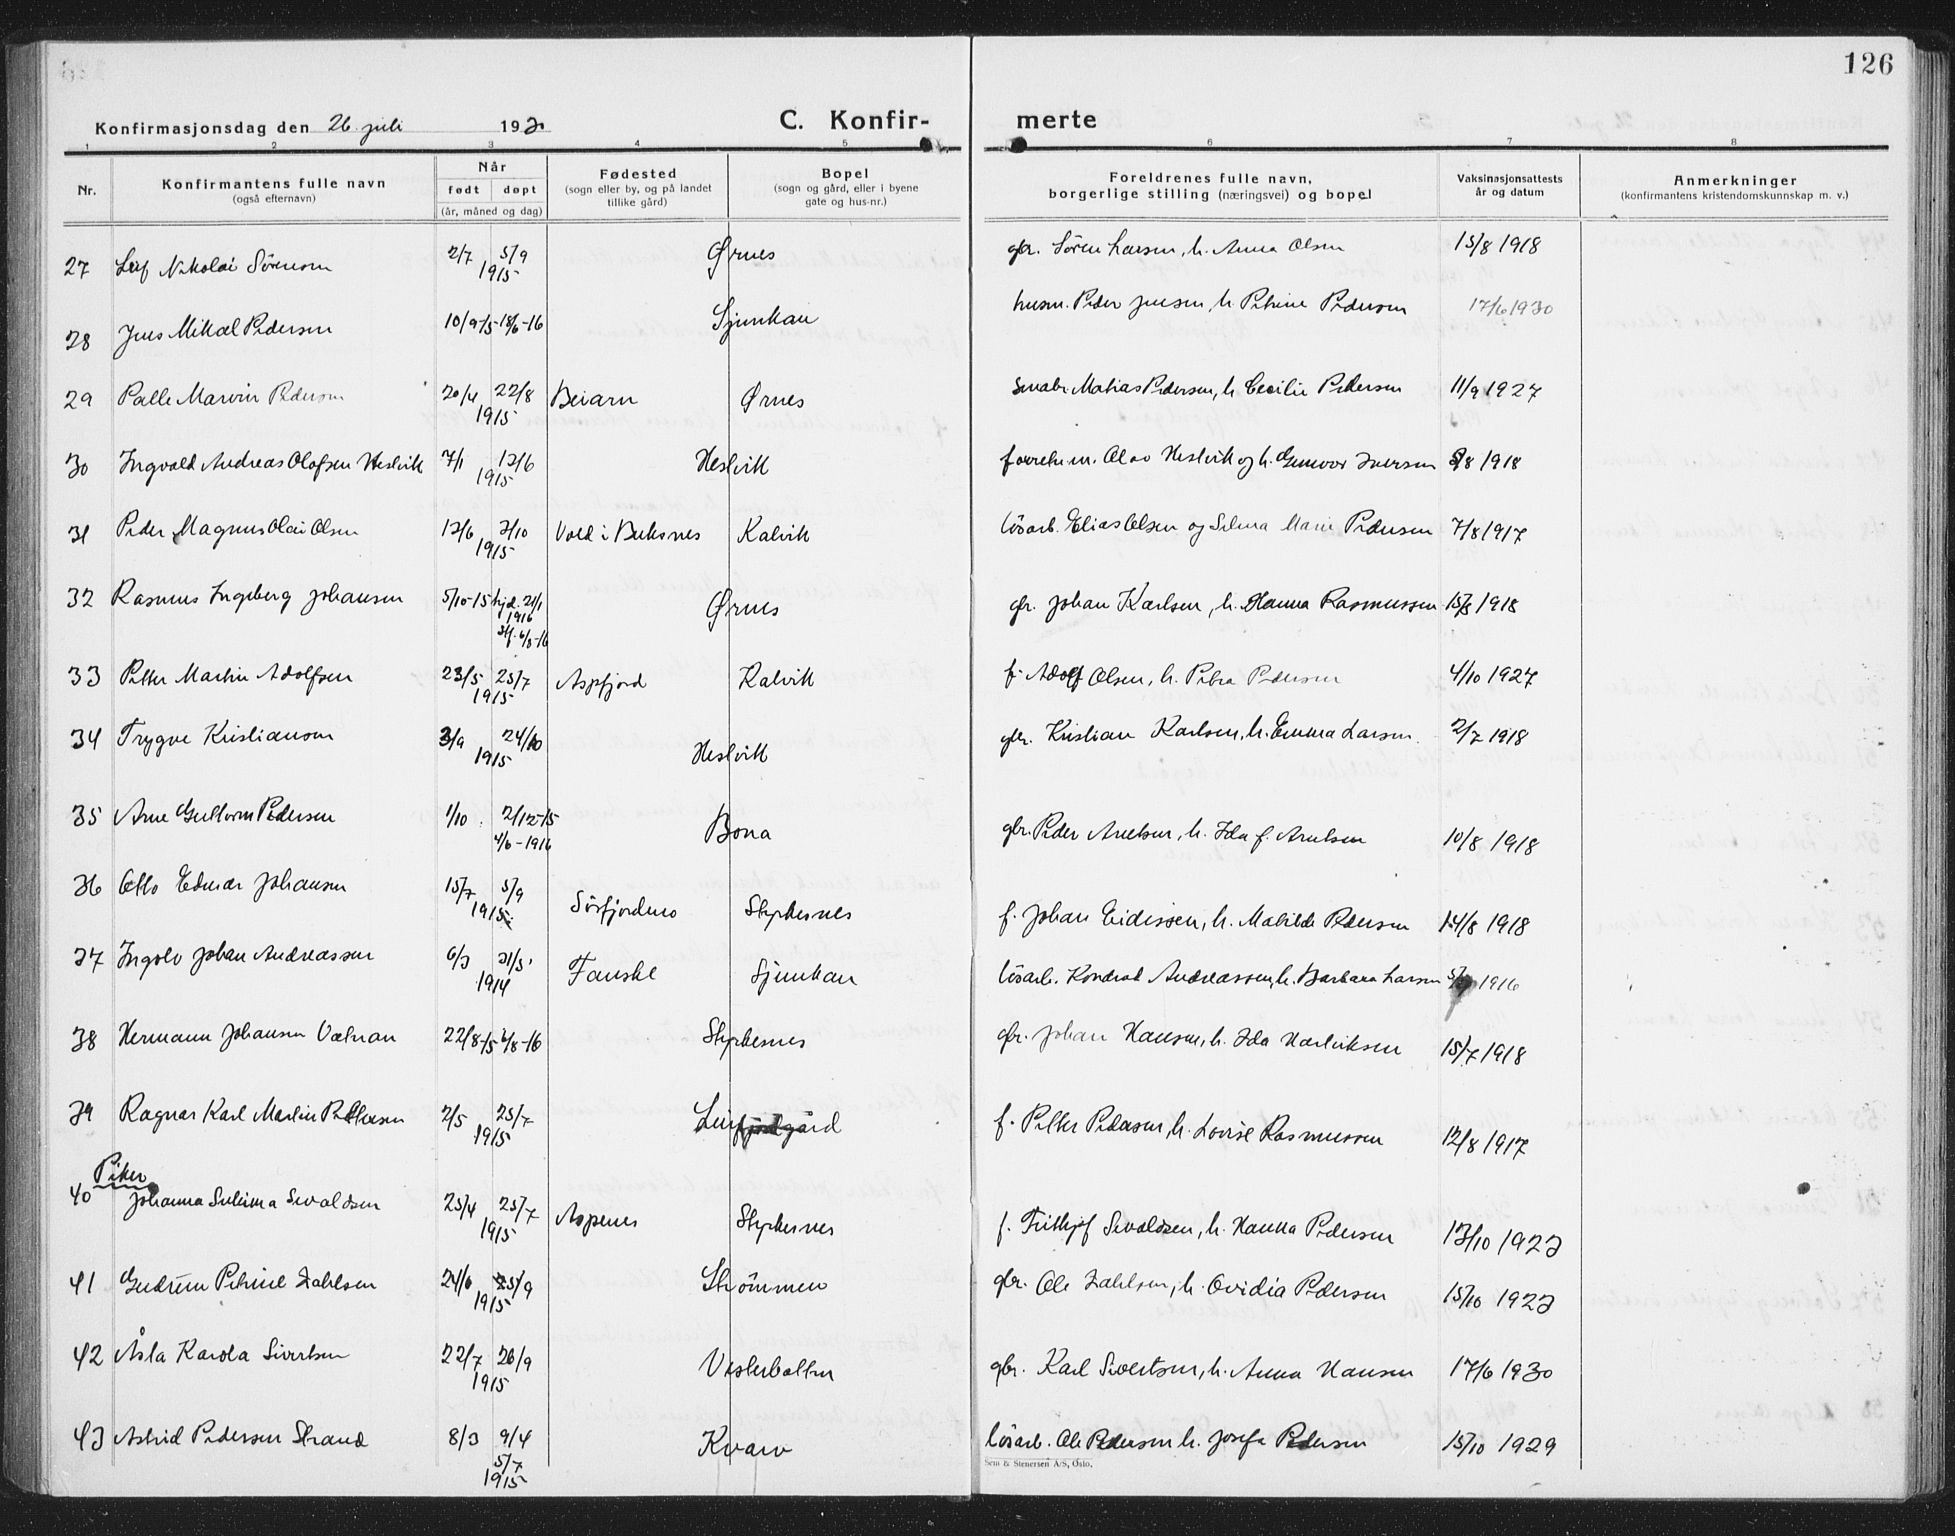 126
Konfirmasjonsdag den 26. juli 1930 C. Konfir- merte
1 2 3 4 5 6 7 8
Nr. Konfirmantens fulle navn (også efternavn) Når født døpt (år, måned og dag) Fødested (sogn eller by, og på landet tillike gård) Bopel (sogn og gård, eller i byene gate og hus-nr.) Foreldrenes fulle navn, borgerlige stilling (næringsvei) og bopel Vaksinasjonsattests år og datum Anmerkninger (konfirmantens kristendomskunnskap m. v.)
27 Leif Nikolai Sörensen 2/7 5/9 1915 Ørnes gbr. Sören Larsen, h. Anna Olsen 15/8 1918
28 Jens Mikal Pedersen 10/9-15 18/6-16 Sjunkan husm. Peder Jensen, h. Petrine Pedersen 17/6 1930
29 Palle Marvin Pedersen 20/4 22/8 1915 Beiarn Ørnes småbr. Matias Pedersen, h. Cecilie Pedersen 11/9 1927
30 Ingvald Andreas Olofsen Heslvik 7/1 13/6 1915 Heslvik forretn.m. Olav Heslvik og h. Gunvor Iversen 8/8 1918
31 Peder Magnus Olai Olsen 13/6 3/10 1915 Vold i Buksnes Kalvik lösarb. Elias Olsen og Selma Marie Pedersen 7/8 1917
32 Rasmus Ingeberg Johansen 5/10-15 hjd. 21/1 1916 stf. 6/8-16 Ørnes gbr. Johan Karlsen, h. Hanna Rasmussen 15/8 1918
33 Petter Martin Adolfsen 23/5 25/7 1915 Aspfjord Kalvik f. Adolf Olsen, h. Petra Pedersen 4/10 1927
34 Trygve Kristiansen 3/9 24/10 1915 Heslvik gbr. Kristian Karlsen, h. Emma Larsen 2/7 1918
35 Arne Guttorm Pedersen 1/10 2/12-15 4/6-1916 Bona gbr. Peder Arntsen, h. Ida f. Arntsen 10/8 1918
36 Otto Edvar Johansen 15/7 5/9 1915 Sörfjorden Styrkesnes f. Johan Eidissen, h. Matilde Pedersen 14/8 1918
37 Ingolv Johan Andreassen 6/3 31/5 1914 Fauske Sjunkan lösarb. Konrad Andreassen, h. Barbara Larsen 1916
38 Hermann Johansen Vatnan 22/8-15 6/8-16 Styrkesnes gbr. Johan Hansen, h. Ida Karlviksen 15/7 1918
39 Ragnar Karl Martin Pettersen 2/5 25/7 1915 Leirfjordgård f. Petter Pedersen, h. Lovise Rasmussen 12/8 1917
Piker
40 Johanna Selima Sivaldsen 25/4 25/7 1915 Aspenes Styrkesnes f. Fritthjof Sivaldsen, h. Hanna Pedersen 13/10 1923
41 Gudrun Petrine Dahlsen 24/6 25/9 1915 Strömmen gbr. Ole Dahlsen, h. Ovidia Pedersen 15/10 1923
42 Åsla Karola Sivertsen 22/7 26/9 1915 Vesterbotten gbr. Karl Sivertsen, h. Anna Hansen 17/6 1930
43 Astrid Pedersen Strand 8/3 9/4 5/7 1915 Kvarv lösarb. Ole Pedersen h. Josefa Pedersen 15/10 1929
Sem & Stenersen A/S, Oslo.